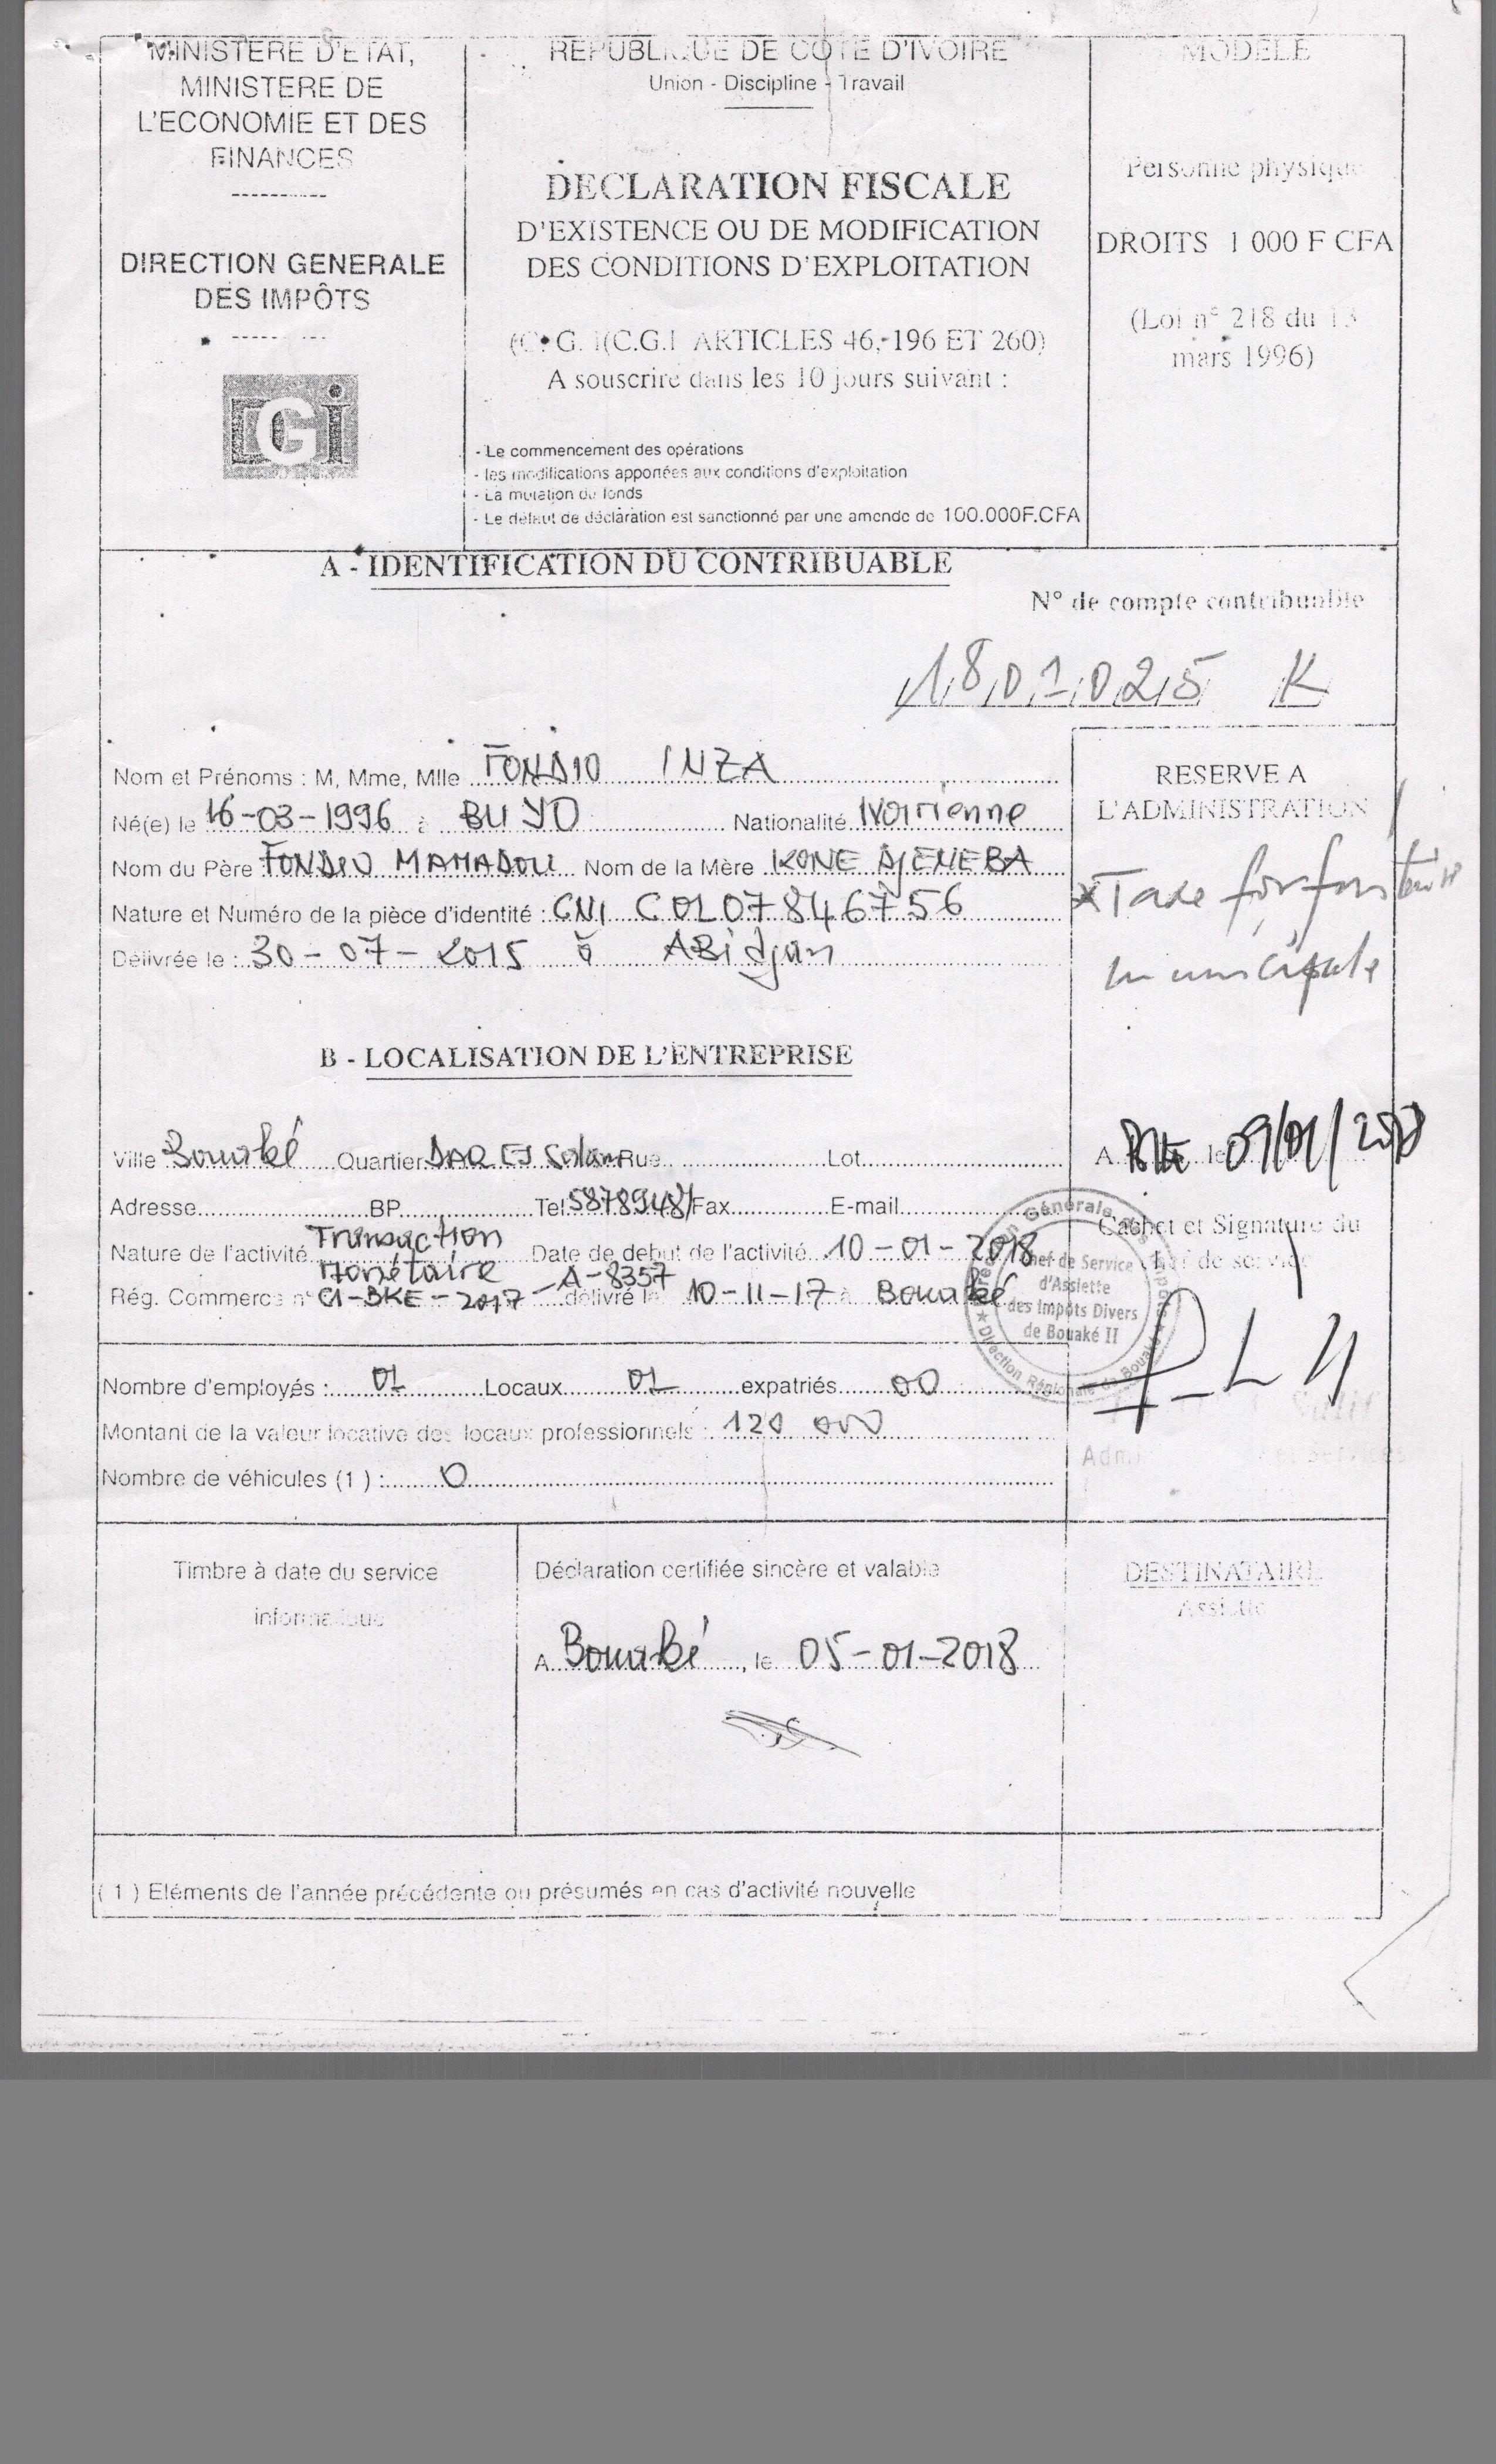 MINISTERE D'ETAT,
MINISTERE DE
L'ECONOMIE ET DES
FINANCES
----------
DIRECTION GENERALE
DES IMPÔTS
DGI
REPUBLIQUE DE COTE D'IVOIRE
Union - Discipline - Travail
DECLARATION FISCALE
D'EXISTENCE OU DE MODIFICATION
DES CONDITIONS D'EXPLOITATION
(C.G.I(C.G.I ARTICLES 46,-196 ET 260)
A souscrire dans les 10 jours suivant :
- Le commencement des opérations
- les modifications apportées aux conditions d'exploitation
- La mutation du fonds
- Le défaut de déclaration est sanctionné par une amende de 100.000F.CFA
MODELE
Personne physique
DROITS 1 000 F CFA
(Loi n° 218 du 13
mars 1996)
A - IDENTIFICATION DU CONTRIBUABLE
N° de compte contribuable
1801025 K
Nom et Prénoms : M, Mme, Mlle FONDIO INZA
Né(e) le 16-03-1996 à BUYO Nationalité Ivoirienne
Nom du Père FONDIO MAMADOU Nom de la Mère KONE DJENEBA
Nature et Numéro de la pièce d'identité : CNI C0107846756
Délivrée le : 30-07-2015 à ABidjan
RESERVE A
L'ADMINISTRATION
* Taxe forfaitaire
municipale
B - LOCALISATION DE L'ENTREPRISE
Ville Bouaké Quartier DAR ES Salam Rue Lot
Adresse BP Tel 58789481 Fax E-mail
Nature de l'activité Transaction Monétaire Date de debut de l'activité 10-01-2018
Rég. Commerce n° CI-BKE-2017-A-8357 délivré le 10-11-17 à Bouaké
A BKE le 09/01/2018
Cachet et Signature du
Chef de service
Direction Générale
Chef de Service
d'Assiette
des Impôts Divers
de Bouaké II
Direction Régionale de Bouaké
Nombre d'employés : 01 Locaux 01 expatriés 00
Montant de la valeur locative des locaux professionnels : 120 000
Nombre de véhicules (1 ) : 0
Timbre à date du service
informatique
Déclaration certifiée sincère et valable
A Bouaké, le 05-01-2018
DESTINATAIRE
Assiette
( 1 ) Eléments de l'année précédente ou présumés en cas d'activité nouvelle